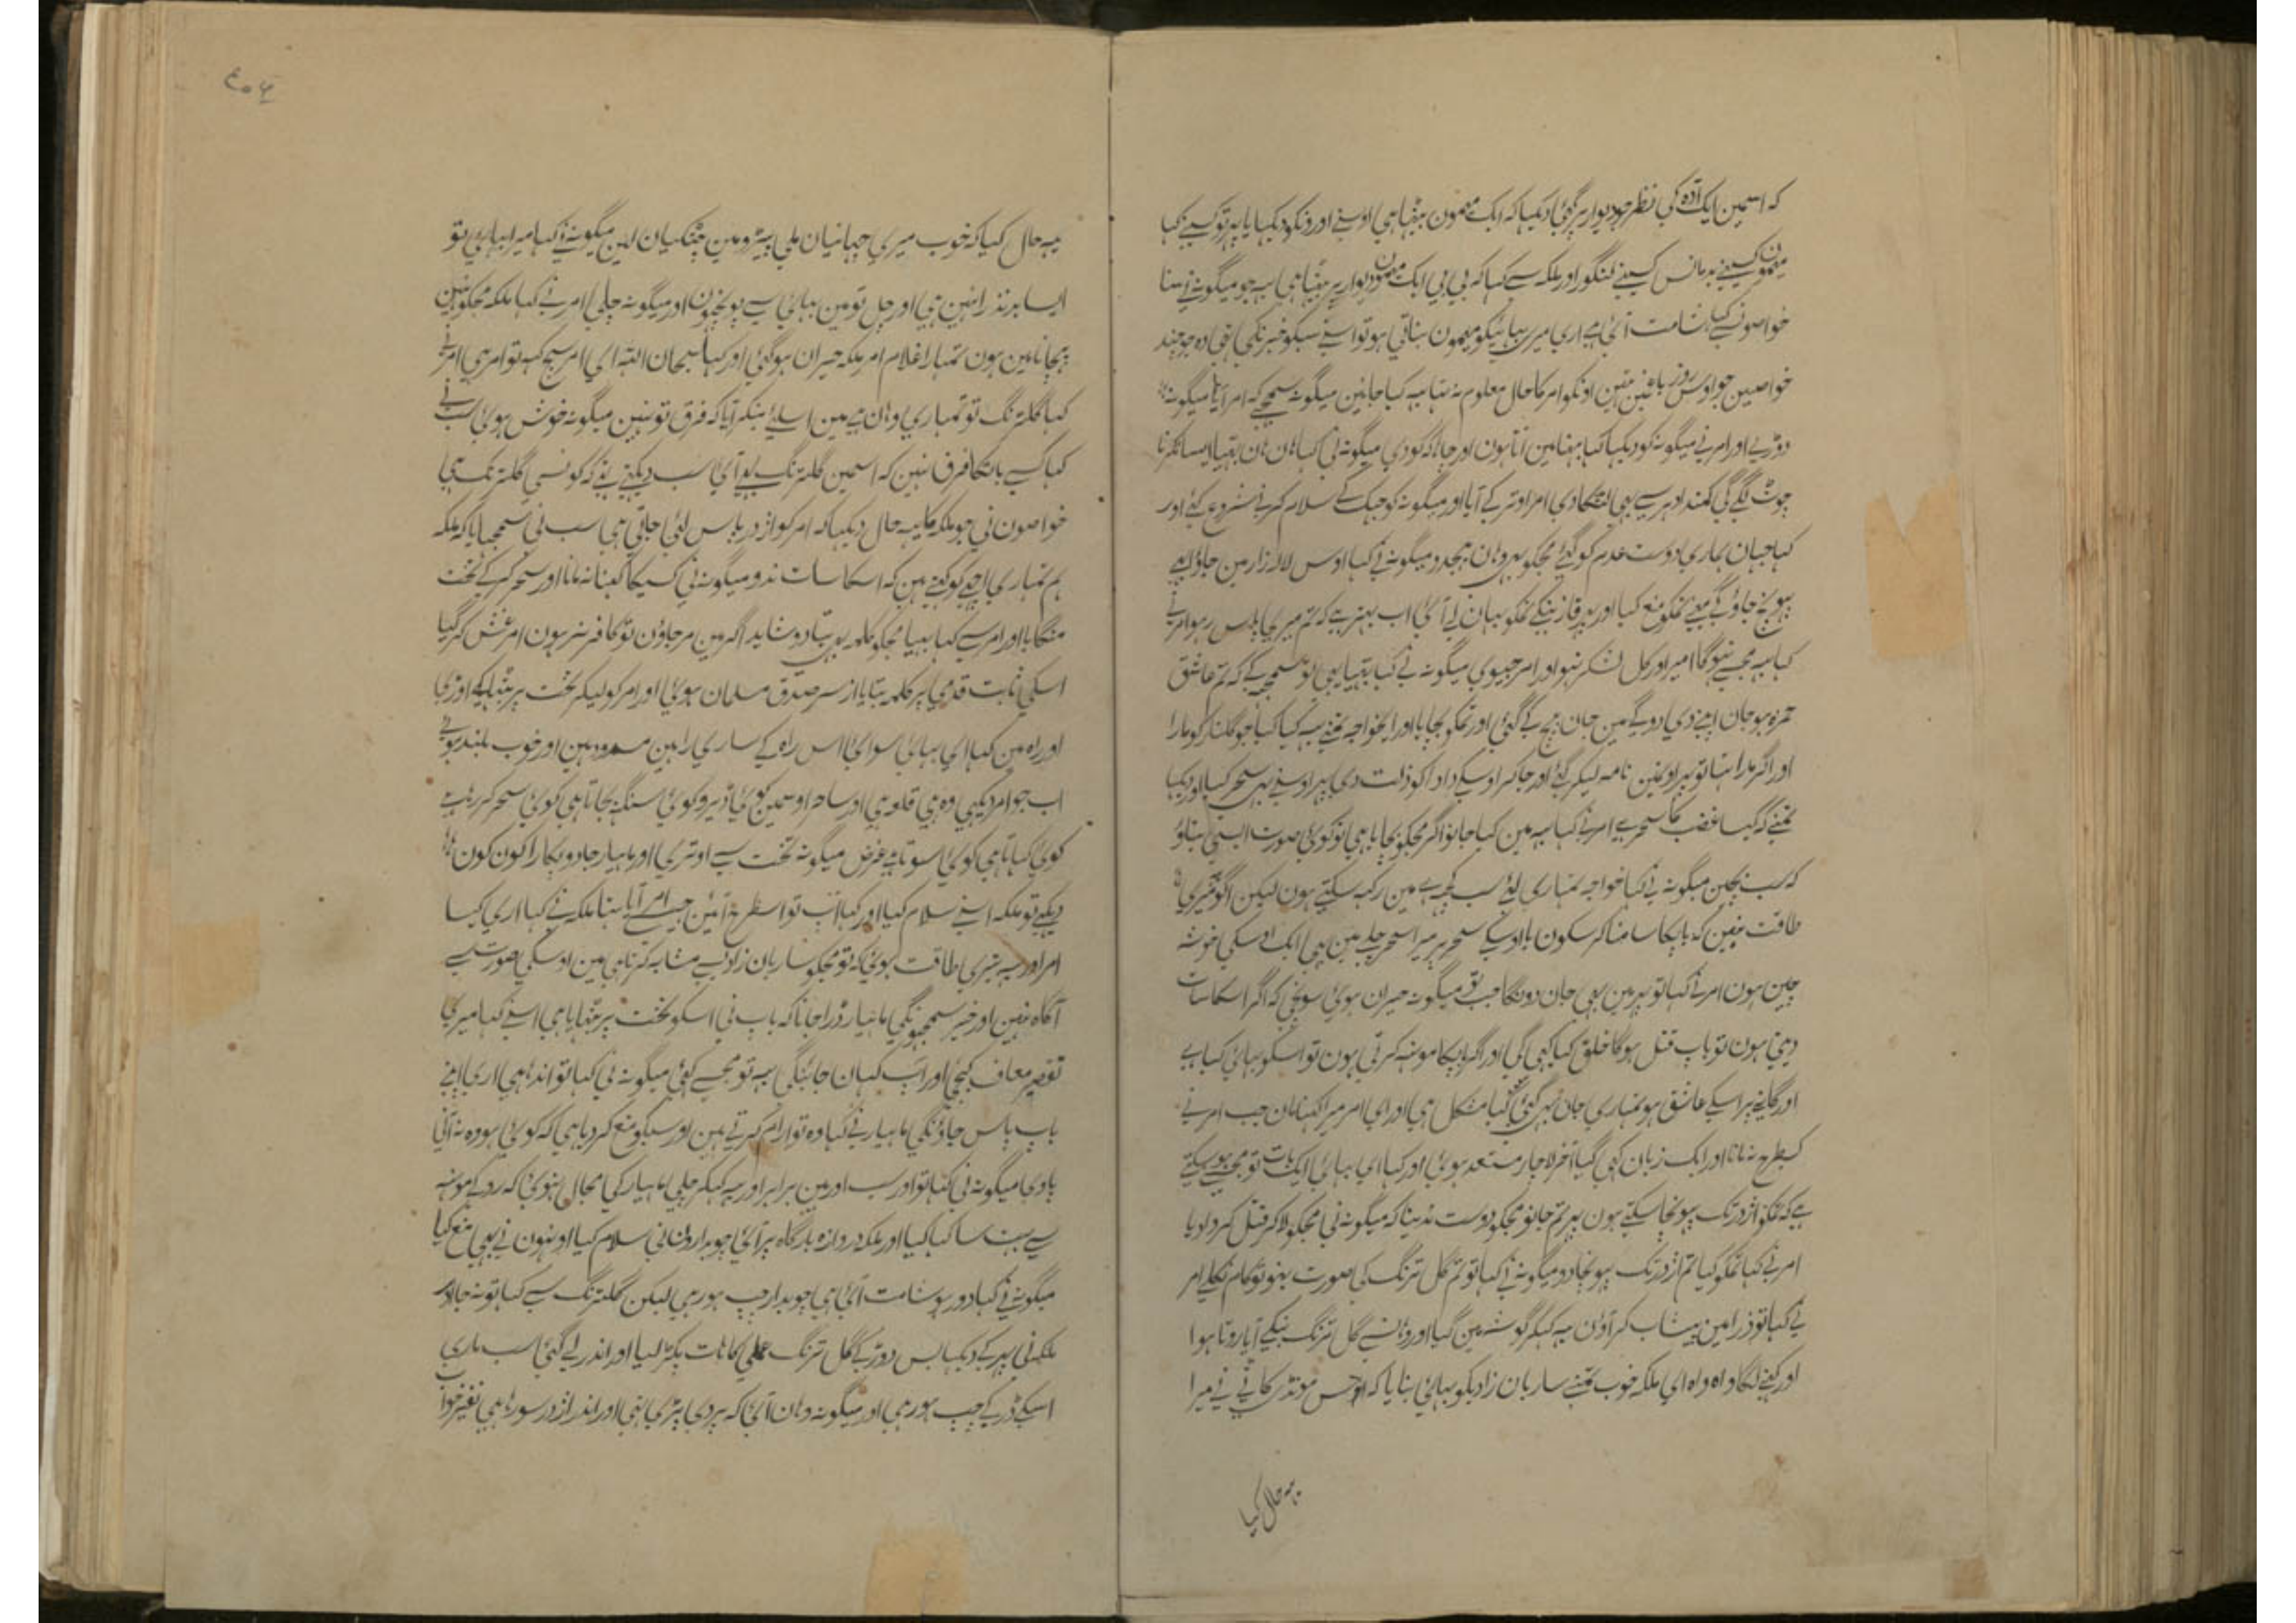 کہ اسمین ایک آدہ کی نظر جو دیوار پر گئی دیکہا کہ ایک میمون بیٹہا ہی اوسنے اورونکو دیکہایا پہر تو کسینے کہا
میمون کسینے بدمانس کسینے لنگور اور ملکہ سے کہا کہ بی بی ایک میمون دیوار پر بیٹہا ہی یہ جو میگونہ نے سنا
خواصونسے کہا شامت آئی ہے اری میرے بہائیکو میمون بناتی ہو تو اسنے سبکو خبر نکی تہی وہ جو چند
خواصین جو اوس روز باغ مین تہین اونکو امر کا حال معلوم نہ تہا یہ کیا جانین میگونہ سمجہے کہ امر آیا میگونہ
دوڑے اور امر نے میگونہ کو دیکہا کہا بہنا مین آتا ہون اور چاہا کہ کودی میگونہ نی کہا ہان ہان بہیا ایسا نکرنا
چوٹ لگے گی کمند ادہر سے بہی لٹکا دی امر اوتر کے آیا اور میگونہ کو جہک کے سلام کرنے شروع کئے اور
کہا جہان ہماری دوست عدم کو گئے مجکو بہی وہان بہیجدو میگونہ نے کہا اوس لالہ زار مین جاؤ ابہی
پہونچ جاؤ گے مینے تمکو منع کیا اور پہر قاز بنکے تمکو یہان لے آئی اب بہتر ہے کہ تم میری پاس رہو امر نے
کہا یہ مجہسے نہوگا امیر اور کل لشکر نہو اور امر جیوی میگونہ نے کہا بہیا یہی تو سمجہہ کے کہ تم عاشق
حمزہ ہو جان اپنے دی دو گے مین جان بچ کے گئی اور تمکو بچایا اور ای خواجہ تمنے یہ کیا کیا جو گلنار کو مارا
اور اگر مارا تہا تو پہر اوتہین نامہ لیکر گئے اور جاکر اوسکے دادا کو ذلت دی پہر اوسنے یہی سحر کیا اور دیکہا
تمنے کہ کیا غضب کا سحر ہے امر نے کہا یہ مین کیا جانو اگر مجکو بچایا ہی تو کوئی صورت ایسی بتاؤ
کہ سب بچین میگونہ نے کہا خواجہ تمہاری لئے سب کچہہ ہے مین رکہہ سکتے ہون لیکن اگو میری
طاقت نہین کہ باپکا سامنا کر سکون یا اوسکے سحر پر میرا سحر چلے مین بہی ایک اوسکی خوشہ
چین ہون امر نے کہا تو پہر مین بہی جان دونگا جب تو میگونہ حیران ہوئی سونچی کہ اگر اسکا سات
دیتی ہون تو باپ قتل ہوگا خلق کیا کہی گی اور اگر باپکا مونہہ کرتی ہون تو اسکو بہائی کہا ہے
کسطرح نہ مانا اور ایک زبان کہی گیا آخر لاچار مستعد ہوئی اور کہا ای بہائی ایک بات تو مجہسے ہو سکتے
ہے کہ تمکو اژدر تک پہونچا سکتے ہون پر تم جانو مجکو دوست ندینا کہ میگونہ نی مجکو لاکر قتل کروا دیا
امر نے کہا تمکو کیا تم اژدر تک پہونچا دو میگونہ نے کہا تو تم گل ترنگ کی صورت بنو تو کام نکلے امر
نے کہا تو ذرا مین پیشاب کر آؤن یہ کہکر گوشہ مین گیا اور وہانسے گل ترنگ بنکے آیا روتا ہوا
اور کہنے لگا واہ واہ ای ملکہ خوب تمنے ساربان زادیکو بہائی بنایا کہ اوس مونڈی کاٹے نے میرا
یہ حال کیا
یہ حال کیا کہ خوب میری چہاتیان ملی پیڑو مین چٹکیان لین میگونہ نے کہا میرا بہائی تو
ایسا بدنظر نہین ہی اور چل تو مین بہائی سے پوچہون اور میگونہ چلی امر نے کہا ملکہ مجکو نہین
پہچانا مین ہون تمہارا غلام امر ملکہ حیران ہو گئی اور کہا سبحان اللہ ای امر سچ کہہ تو امر ہی امر نے
کہا گلترنگ تو تمہاری وہان ہے مین اسلئے بنکر آیا کہ فرق تو نہین میگونہ خوش ہوئی سب نے
کہا کسے باتکا فرق نہین کہ اسمین گلترنگ بہی آئی سب دیکہنے لگے کہ کونسی گلترنگ ہی
خواصون نی جو ملکہ کا یہ حال دیکہا کہ امر کو اژدر پاس لئی جاتی ہی سب نی سمجہایا کہ ملکہ
ہم تمہاری اچہے کو کہتے ہین کہ اسکا سات ندو میگونہ نی کسیکا کہنا نہ مانا اور سحر کرکے تخت
منگایا اور امر سے کہا بہیا مجکو کلمہ بہی بتا دو شاید اگر مین مرجاؤن تو کافر نمرون امر غش کر گیا
اسکی ثابت قدمی پر کلمہ بتایا از سر صدق مسلمان ہوئی اور امر کو لیکر تخت پر بیٹہا کے اوڑی
اور راہ مین کہا ای بہائی سوای اس راہ کے ساری راہین مسدود ہین اور خوب بلند ہوئے
اب جو امر دیکہی وہ ہی قلعہ ہی اور ساحر اوسمین کوئی ڈیرو کوئی سنگہہ بجاتا ہی کوئی سحر کر رہا ہے
کوئی گاتا ہی کوئی سوتا ہے غرض میگونہ تخت سے اوتری اور ماہیار جادو پکارا کون کون
دیکہے تو ملکہ اسنے سلام کیا اور کہا آپ تو اسطرح آئین جیسے امر آیا ہنسا ملکہ نے کہا اری کیسا
امر اور یہ تیری طاقت ہوئی کہ تو مجکو ساربان زادیسے مشابہ کرتا ہی مین اوسکی صورت سے
آگاہ نہین اور خیر سمجہونگی ماہیار ڈرا جانا کہ باپ نی اسکو تخت پر بٹہایا ہی اسنے کہا میری
تقصیر معاف کیجی اور آپ کہان جائنگی یہ تو مجہسے کہئی میگونہ نی کہا تو اندہا ہی اری اپنے
باپ پاس جاؤنگی ماہیار نے کہا وہ تو آرام کرتے ہین اور سبکو منع کر دیا ہی کہ کوئی ہو وہ نہ آنی
پاوی میگونہ نی کہا تو اور سب اور مین برابر اور یہ کہکر چلی ماہیار کی مجال نہوئی کہ روکے مونہہ
سے بہت سا کہا کیا اور ملکہ دروازہ بارگاہ پر آئی چوبدارون نی سلام کیا اونہون نے بہی منع کیا
میگونہ نے کہا دور ہو شامت آئی ہی چوبدار چپ ہو رہی لیکن گلترنگ سے کہا تو نہ جا اور
ملکہ نی پہر کے دیکہا بس دوڑ کے گل ترنگ عملی کا ہات پکڑ لیا اور اندر لے گئی سب ماری
اسکے ڈر کے چپ ہو رہی اور میگونہ وہان آئی کہ پردی پڑی تہی اور اندر اژدر سو رہا ہی نفیر خواب